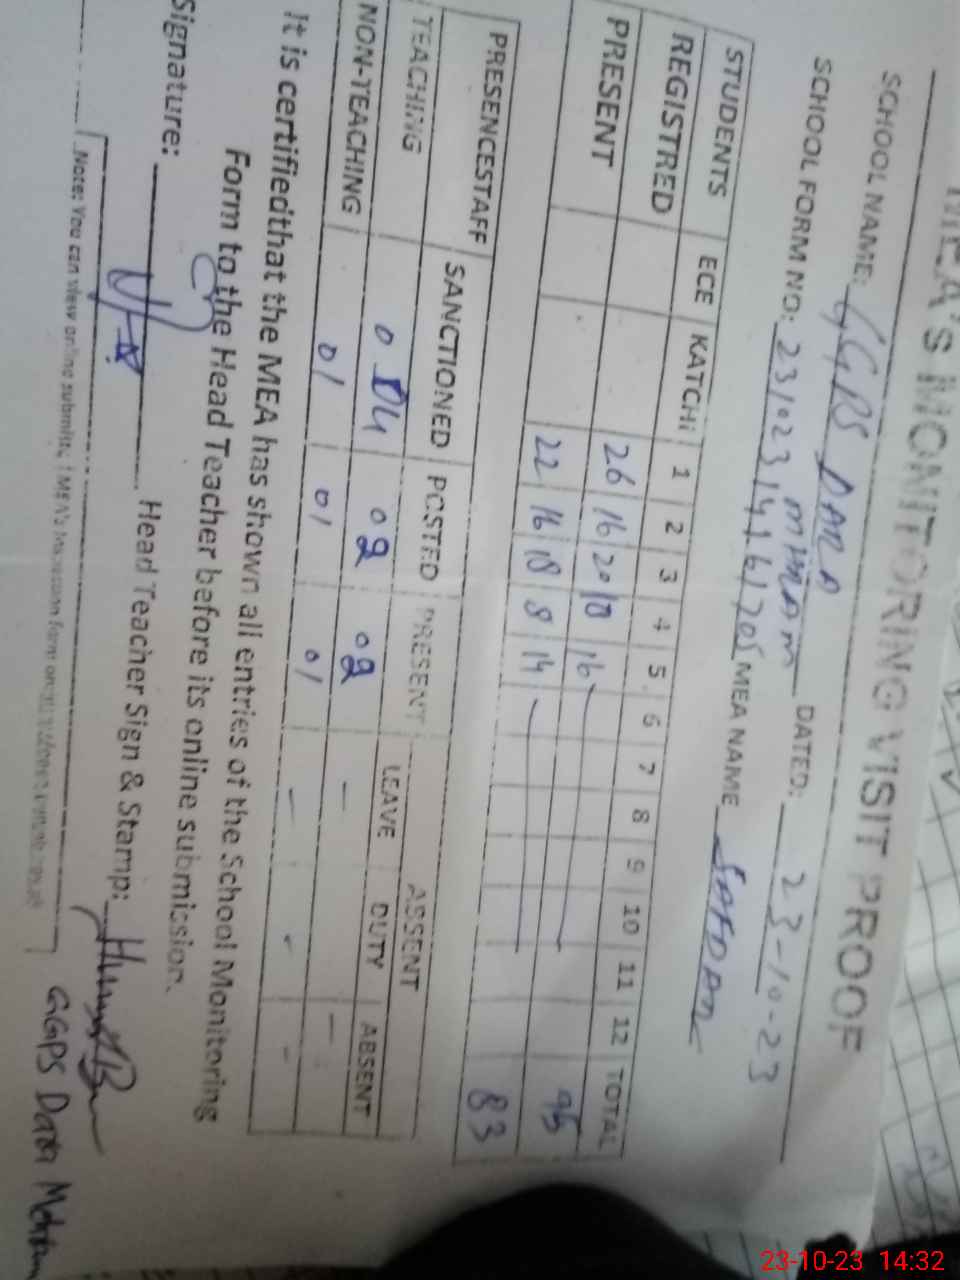 MEA's MONITORING VISIT PROOF
SCHOOL NAME: GGPS DATA
MHRAM DATED: 23-10-23
SCHOOL FORM NO: 23102314161705 MEA NAME SAFDAR
STUDENTS ECE KATCHI 1 2 3 4 5 6 7 8 9 10 11 12 TOTAL
REGISTRED 26 16 20 18 16 95
PRESENT 22 16 18 8 14 83
PRESENCESTAFF SANCTIONED POSTED PRESENT ASSENT
LEAVE DUTY ABSENT
TEACHING 04 02 02 - -
NON-TEACHING 01 01 01 - - -
It is certifiedthat the MEA has shown all entries of the School Monitoring
Form to the Head Teacher before its online submission.
Signature: Head Teacher Sign & Stamp:
GGPS Data Mehram
Note: You can view online submitted MEA's
23-10-23 14:32